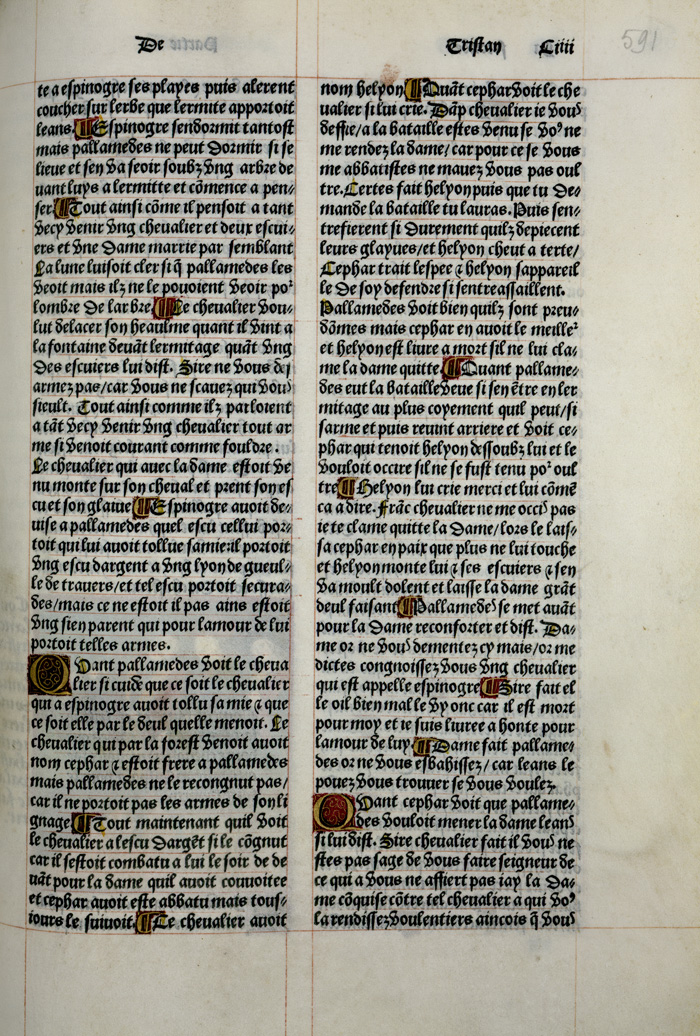 De
Tristan Ciiii
591
te a espinogre ses playes puis alerent
coucher sur lerbe que lermite apportoit
leans. ¶Espinogre sendormit tantost
mais pallamedes ne peut dormir si se
lieue et sen va seoir soubz vng arbre de
uant luys a lermitte et cōmence a pen⸗
ser. ¶Tout ainsi cōme il pensoit a tant
vecy venir vng chevalier et deux escui⸗
ers et vne dame marrie par semblant
La lune luisoit cler si q̄ pallamedes les
veoit mais ilz ne le pouoient veoir poꝛ
lombre de larbre. ¶Le chevalier vou⸗
lut delacer son heaulme quant il vint a
la fontaine deuāt lermitage quāt vng
des escuiers lui dist. Sire ne vous des
armez pas/car vous ne scauez qui voꝰ
sieult. Tout ainsi comme ilz parloient
a tāt vecy venir vng chevalier tout ar
me si venoit courant comme fouldre.
Le chevalier qui auec la dame estoit ve
nu monte sur son cheval et prent son es
cu et son glaiue ¶Espinogre auoit de⸗
uise a pallamedes quel escu cellui por⸗
toit qui lui auoit tollue samie:il portoit
vng escu dargent a vng lyon de gueul⸗
le de trauers/et tel escu portoit secura⸗
des/mais ce ne estoit il pas ains estoit
vng sien parent qui pour lamour de lui
portoit telles armes.
Quant pallamedes voit le cheua
lier si cuide que ce soit le chevalier
qui a espinogre auoit tollu sa mie ⁊ que
ce soit elle par le deul quelle menoit. Le
chevalier qui par la forest venoit auoit
nom cephar ⁊ estoit frere a pallamedes
mais pallamedes ne le recongnut pas/
car il ne portoit pas les armes de son li
gnage. ¶Tout maintenant quil voit
le chevalier a lescu dargēt si le cōgnut
car il sestoit combatu a lui le soir de de
uāt pour la dame quil auoit conuoitee
et cephar auoit este abbatu mais tous⸗
iours le suiuoit. ¶Le chevalier auoit
nom helyon. ¶Quāt cephar voit le che
ualier si lui crie. Dāp chevalier ie voꝰ
deffie/a la bataille estes venu se voꝰ ne
me rendez la dame/car pour ce se vous
me abbatistes ne mauez vous pas oul
tre. Certes fait helyon puis que tu de⸗
mande la bataille tu lauras. Puis sen⸗
trefierent si durement quilz depiecent
leurs glayues/et helyon cheut a terre/
Cephar trait lespee ⁊ helyon sappareil
le de soy defendre si sentreassaillent.
Pallamedes voit bien quilz sont preu⸗
dōmes mais cephar en auoit le meilleꝛ
et helyon est liure a mort sil ne lui cla⸗
me la dame quitte. ¶Quant pallame⸗
des eut la bataille veue si sen ētre en ler
mitage au plus coyement quil peut/si
sarme et puis reuint arriere et voit ce⸗
phar qui tenoit helyon dessoubz lui et le
vouloit occire sil ne se fust tenu poꝛ oul
tre ¶Helyon lui crie merci et lui cōmē
ca a dire. Frāc chevalier ne me occiꝰ pas
ie te clame quitte la dame/lors le lais⸗
sa cephar en paix que plus ne lui touche
et helyon monte lui ⁊ ses escuiers ⁊ sen
va moult dolent et laisse la dame grāt
deul faisant ¶Pallamedeꝰ se met auāt
pour la dame reconforter et dist. Da⸗
me or ne voꝰ dementez cy mais/or me
dictes congnoissez vous vng chevalier
qui est appelle espinogre ¶Sire fait el
le oil bien mal le vy onc car il est mort
pour moy et ie suis liuree a honte pour
lamour de luy. ¶Dame fait pallame⸗
des or ne vous esbahissez/ car leans le
pouez vous trouuer se vous voulez.
Quant cephar voit que pallame⸗
des vouloit mener la dame leanꝰ
si lui dist. Sire chevalier fait il voꝰ ne
stes pas sage de vous faire seigneur de
ce qui a vous ne affiert pas iay la da⸗
me cōquise cōtre tel chevalier a qui voꝰ
la rendissez voulentiers aincois q̄ voꝰ